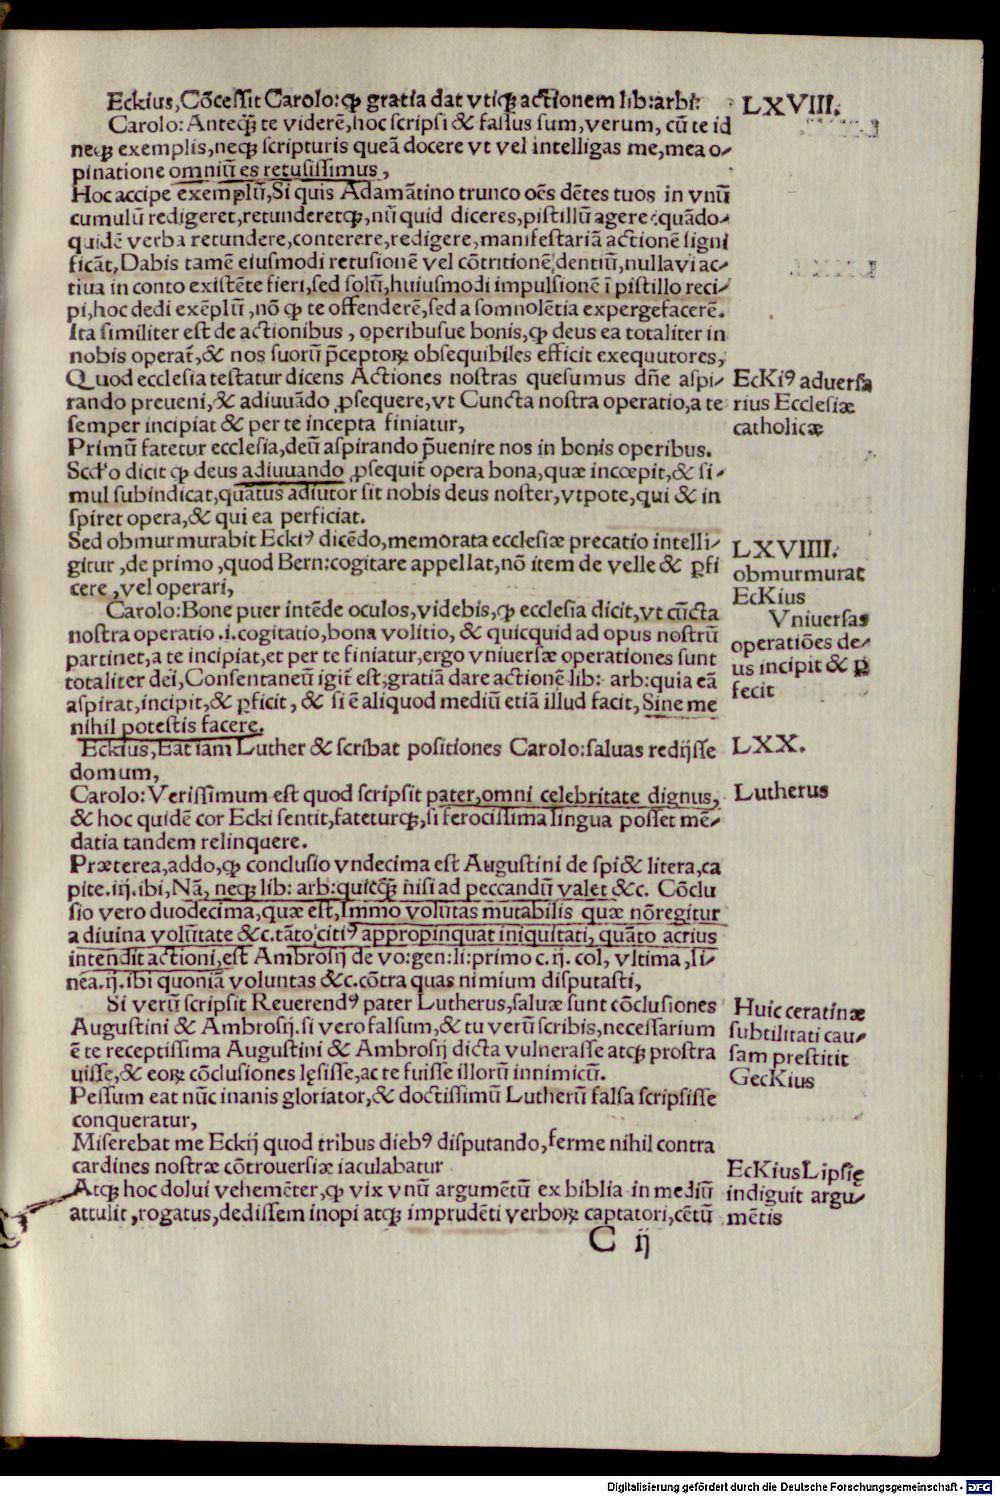 Eckius, Cõcessit Carolo: ꝙ gratia dat vtiqꝫ actionem lib: arbi: LXVIII.
Carolo: Anteqꝫ̃ te viderẽ, hoc scripsi & fassus sum, verum, cũ te id
neqꝫ exemplis, neqꝫ scripturis queã docere vt vel intelligas me, mea o-
pinatione omniũ es retusissimus,
Hoc accipe exemplũ, Si quis Adamãtino trunco oẽs dẽtes tuos in vnũ
cumulũ redigeret, retunderetqꝫ, nũ quid diceres, pistillũ agere: quãdo-
quidẽ verba retundere, conterere, redigere, manifestariã actionẽ signi
ficãt, Dabis tamẽ eiusmodi retusionẽ vel cõtritionẽ dentiũ, nulla vi ac-
tiua in conto existẽte fieri, sed solũ, huiusmodi impulsionẽ ĩ pistillo reci-
pi, hoc dedi exẽplũ, nõ ꝙ te offenderẽ, sed a somnolẽtia expergefacerẽ.
Ita similiter est de actionibus, operibusue bonis, ꝙ deus ea totaliter in
nobis operat̃, & nos suorũ p̃ceptoꝝ obsequibiles efficit exequutores,
Quod ecclesia testatur dicens Actiones nostras quesumus dñe aspi-
rando preueni, & adiuuãdo ꝓsequere, vt Cuncta nostra operatio, a te
semper incipiat & per te incepta finiatur,
EcKiꝰ aduersa
rius Ecclesiæ
catholicæ
Primũ fatetur ecclesia, deũ aspirando p̃uenire nos in bonis operibus.
Scd'o dicit ꝙ deus adiuuando ꝓsequit̃ opera bona, quæ incœpit, & si-
mul subindicat, quatus adiutor sit nobis deus noster, vtpote, qui & in
spiret opera, & qui ea perficiat.
Sed obmurmurabit Eckiꝰ dicẽdo, memorata ecclesiæ precatio intelli-
gitur, de primo, quod Bern: cogitare appellat, nõ item de velle & ꝑfi
cere, vel operari,
LXVIIII.
obmurmurat
EcKius
Carolo: Bone puer intẽde oculos, videbis, ꝙ ecclesia dicit, vt cũcta
nostra operatio .i. cogitatio, bona volitio, & quicquid ad opus nostrũ
partinet, a te incipiat, et per te finiatur, ergo vniuersæ operationes sunt
totaliter dei, Consentaneũ igit̃ est, gratiã dare actionẽ lib: arb: quia eã
aspirat, incipit, & ꝑficit, & si ẽ aliquod mediũ etiã illud facit, Sine me
nihil potestis facere.
Vniuersas
operatiões de-
us incipit & ꝑ
fecit
Eckius, Eat iam Luther & scribat positiones Carolo: saluas redijsse
domum,
LXX.
Carolo: Verissimum est quod scripsit pater, omni celebritate dignus,
& hoc quidẽ cor Ecki sentit, fateturqꝫ, si ferocissima lingua posset mẽ-
datia tandem relinquere.
Lutherus
Præterea, addo, ꝙ conclusio vndecima est Augustini de spi & litera, ca
pite. iij. ibi, Nã, neqꝫ lib: arb: quicqꝫ̃ nisi ad peccandũ valet &c. Cõclu
sio vero duodecima, quæ est, Immo volũtas mutabilis quæ nõregitur
a diuina volũtate &c. tãto citiꝰ appropinquat iniquitati, quãto acrius
intendit actioni, est Ambrosij de vo: gen: li: primo c. ij. col, vltima, li-
nea. ij. ibi quoniã voluntas &c. cõtra quas nimium disputasti,
Si verũ scripsit Reuerendꝰ pater Lutherus, saluæ sunt cõclusiones
Augustini & Ambrosij. si vero falsum, & tu verũ scribis, necessarium
ẽ te receptissima Augustini & Ambrosij dicta vulnerasse atqꝫ prostra
uisse, & eoꝝ cõclusiones lęsisse, ac te fuisse illorũ innimicũ.
Huic ceratinæ
subtilitati cau-
sam prestitit
GecKius
Pessum eat nũc inanis gloriator, & doctissimũ Lutherũ falsa scripsisse
conqueratur,
Miserebat me Eckij quod tribus diebꝰ disputando, ferme nihil contra
cardines nostræ cõtrouersiæ iaculabatur
Atqꝫ hoc dolui vehemẽter, ꝙ vix vnũ argumẽtũ ex biblia in mediũ
attulit, rogatus, dedissem inopi atqꝫ imprudẽti verboꝝ captatori, cẽtũ
EcKius Lipsię
indiguit argu-
mẽtis
C ij
Digitalisierung gefördert durch die Deutsche Forschungsgemeinschaft - DFG